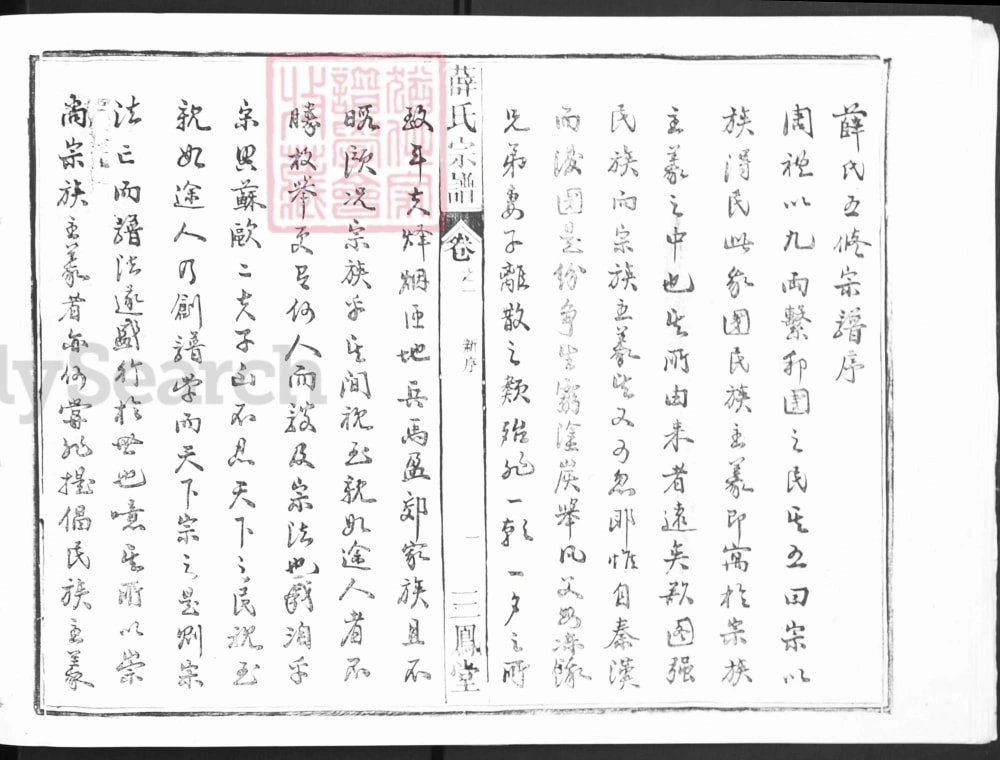 薛氏五修宗譜序
周禮以九兩繫邦國之民其五曰宗以
族得民此家國民族主義即寓於宗族
主義之中也其所由來者遠矣欲圖强
民族而宗族主義其又可忽耶惟自秦漢
而後國是紛爭生窮塗炭舉凡父母凍餓
兄弟妻子離散之類殆非一朝一夕之所
致年夫烽烟匝地兵馬盈郊家族且不
暇顧况宗族乎其間視至親如途人者不
勝枚舉更有何人而談及宗法也哉洎乎
宗興蘇歐二夫子出不忍天下之民視至
親如途人乃創譜學而天下宗之是則宗
法亡而譜法遂盛行於世也噫其所以崇
尚宗族主義者亦何嘗非提倡民族主義
薛氏宗譜
卷之一
新序
一
三鳳堂
lySearch